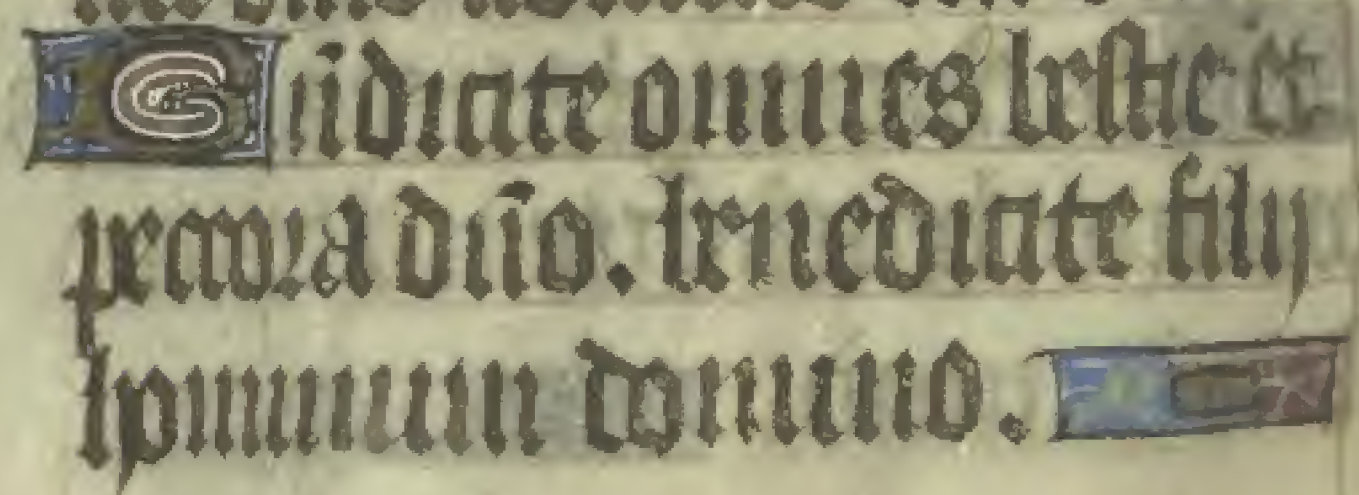 Bn̄dicite omnes bestie et
pecora dn̄o. benedicite filij
hominum domino.